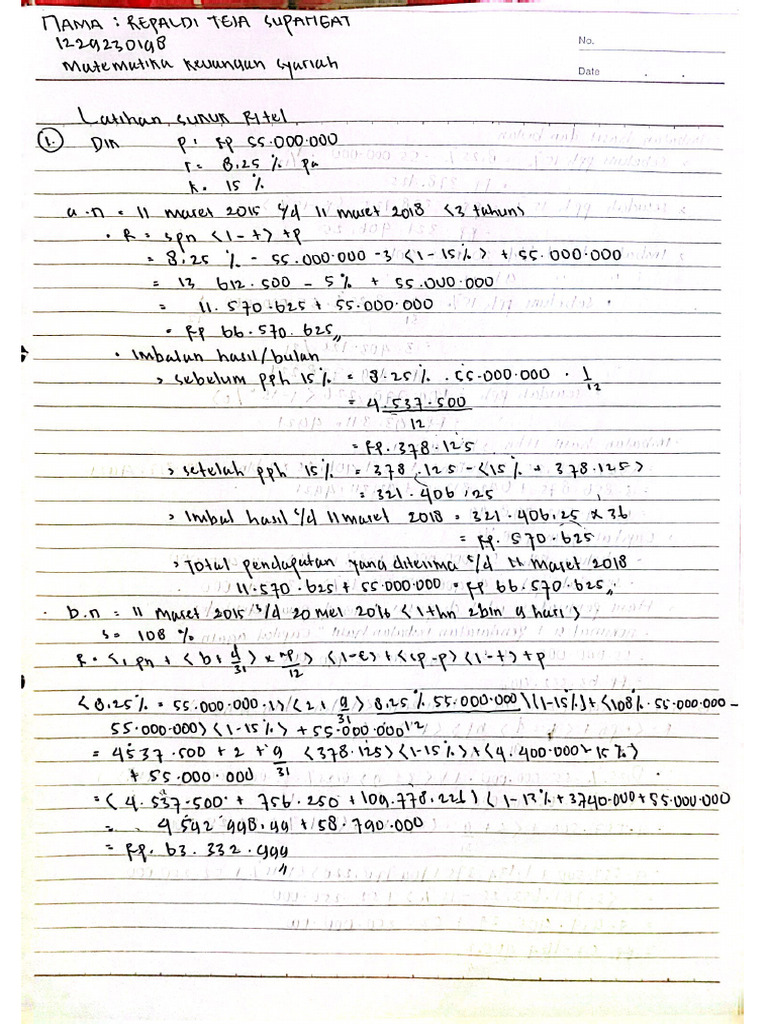 NAMA : REPALDI TEJA SUPANGAT
1229230198
Matematika Keuangan Syariah
No.
Date . .
Latihan Sukuk Ritel
1. Dik P : Rp 55.000.000
r = 8.25 % pa
t = 15 %
a. n = 11 maret 2015 s/d 11 maret 2018 <3 tahun>
• R = spn <1-t> +p
= 8.25 % - 55.000.000 -3 <1-15%> + 55.000.000
= 13 612.500 - 5% + 55.000.000
= 11.570.625 + 55.000.000
= Rp 66.570.625,,
• Imbalan hasil/bulan
> sebelum pph 15% = 8.25%. 55.000.000 . 1/12
= 4.537.500
12
= Rp. 378.125
> setelah pph 15% = 378.125 - <15% + 378.125>
= 321.406,25
> Imbal hasil s/d 11 maret 2018 = 321.406,25 x 36
= Rp. 570.625
> Total pendapatan yang diterima s/d 11 Maret 2018
11.570.625 + 55.000.000 = Rp 66.570.625,,
• b. n = 11 Maret 2015 s/d 20 mei 2016 <1 thn 2 bln 9 hari>
s = 108 %
R = <, pn + <b + d/31> x rp/12> <1-t> + <cp-p> <1-t> + p
<8.25% = 55.000.000 .1> <2, 9/31> 8.25% 55.000.000/12 \ (1-15%] + <108%. 55.000.000 -
55.000.000> <1-15%> + 55.000.000
= 4537.500 + 2 + 9/31 <378.125> <1-15%> + <4.400.000 - 15%>
+ 55.000.000
= <4.537.500 + 756.250 + 109.778,226> <1-15% + 3740.000 + 55.000.000
= 4 592 998,99 + 58.790.000
= Rp. 63.332.999,,